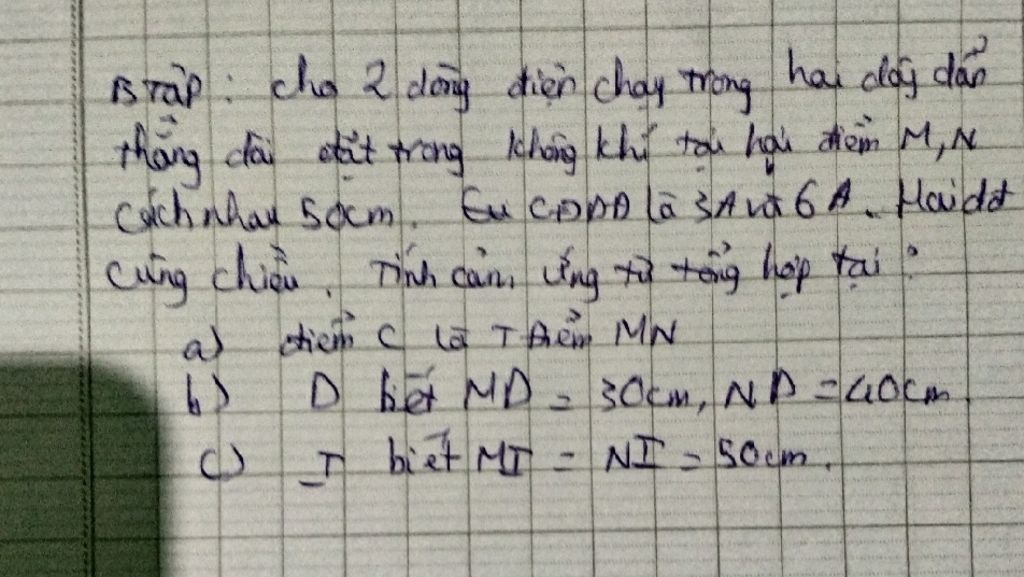 B Tập: cho 2 dòng điện chạy trong hai dây dẫn
thẳng dài đặt trong không khí tại hai điểm M, N
cách nhau 50cm. CDDĐ là 3A và 6A. Hai dđ
cùng chiều. Tính cảm ứng từ tổng hợp tại:
a) điểm C là T điểm MN
b) D biết MD = 30cm, ND = 40cm
c) I biết MI = NI = 50cm.